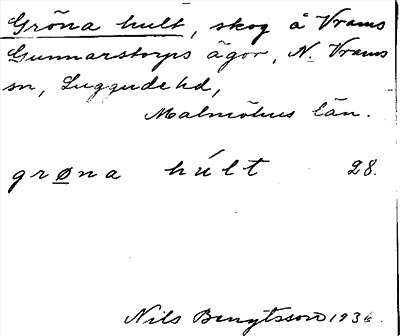 Gröna hult, skog å Vrams
Gunnarstorps ägor, N. Vrams
sn, Luggude hd,
Malmöhus län.
grøna húlt 28.
Nils Bengtsson 1936.